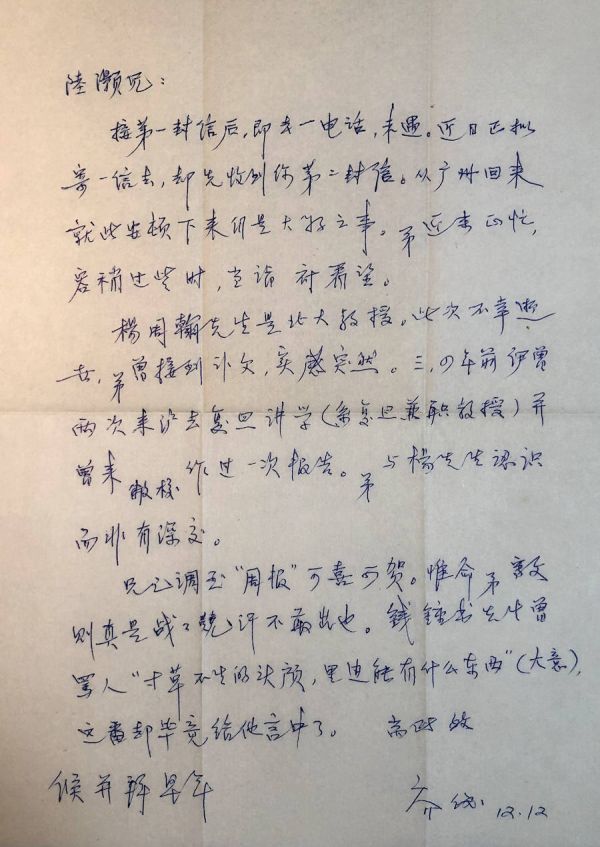 陸灏兄：
接第一封信后，即去一电话，未遇。近日正拟
寄一信去，却先收到你第二封信。从广州回来
就此安顿下来仍是大好之事。弟近来正忙，
容稍过些时，当诣府看望。
楊周翰先生是北大教授。此次不幸逝
世，弟曾接到讣文，实感突然。三、四年前伊曾
两次来沪去复旦讲学(系复旦兼职教授)并
曾来敝校作过一次报告。弟与楊先生認识
而非有深交。
兄已调至“周报”可喜可贺。惟命弟
则真是战々兢々汗不敢出也。錢鍾书先生曾
罵人“寸草不生的头颅，里边能有什么东西”(大意)，
这番却毕竟给他言中了。 耑此 敬
候并拜早年
12.12